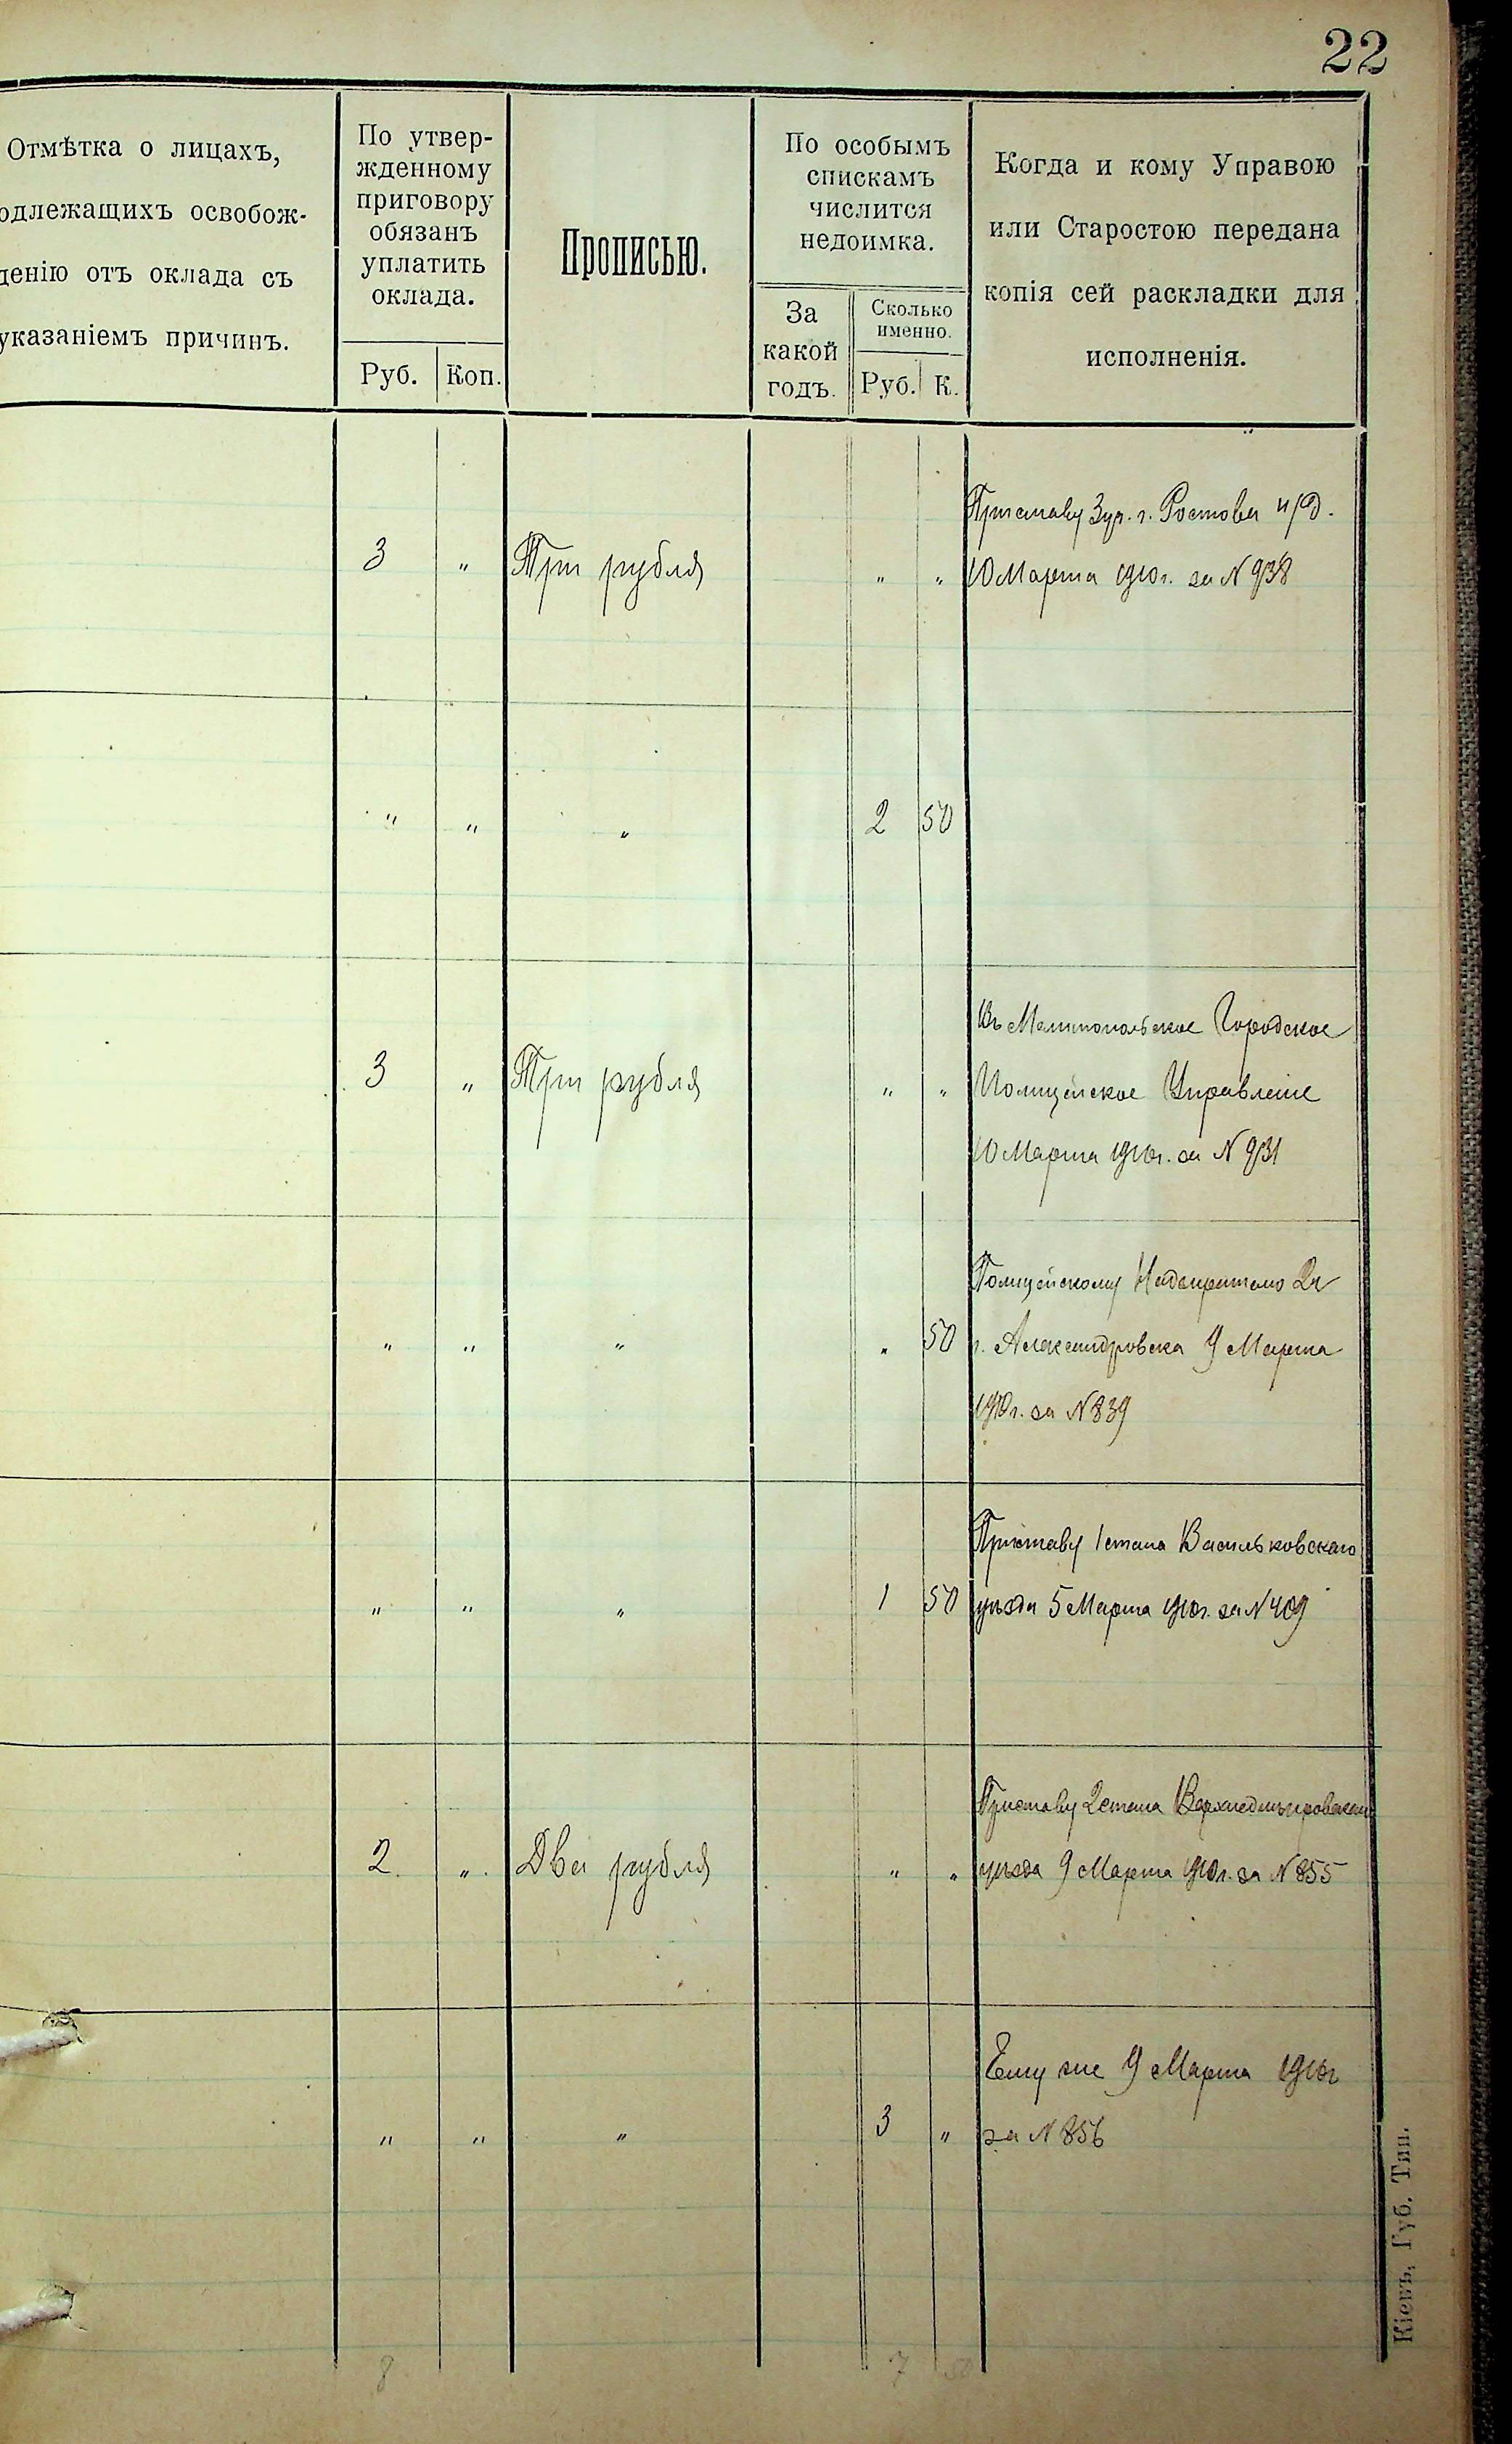 22
Отмѣтка о лицахъ,
одлежащихъ освобож-
денію отъ оклада съ
указаніемъ причинъ.
По утвер-
жденному
приговору
обязанъ
уплатить
оклада.
Руб. Коп.
Прописью.
По особымъ
спискамъ
числится
недоимка.
За
какой
годъ.
Сколько
именно.
Руб. К.
Когда и кому Управою
или Старостою передана
копія сей раскладки для
исполненія.
Приставу 3 уч. г. Ростова н/Д.
3 " Три рубля " " 10 Марта 1910 г. за N 938
" " " 2 50
Въ Мелитопольское Городское
3 " Три рубля " " Полицейское Управленіе
10 Марта 1910 г. за N 931
Полицейскому Надзирателю 2 ч
" " " " 50 г. Александровска 9 Марта
1910 г. за N 839
Приставу 1 стана Васильковскаго
" " " 1 50 уѣзда 5 Марта 1910 г. за N 409
Приставу 2 стана Верхнеднѣпровскаго
2 " Два рубля " " уѣзда 9 Марта 1910 г. за N 855
Ему же 9 Марта 1910 г
" " " 3 " за N 856
8 7 50
Кіевъ, Губ. Тип.